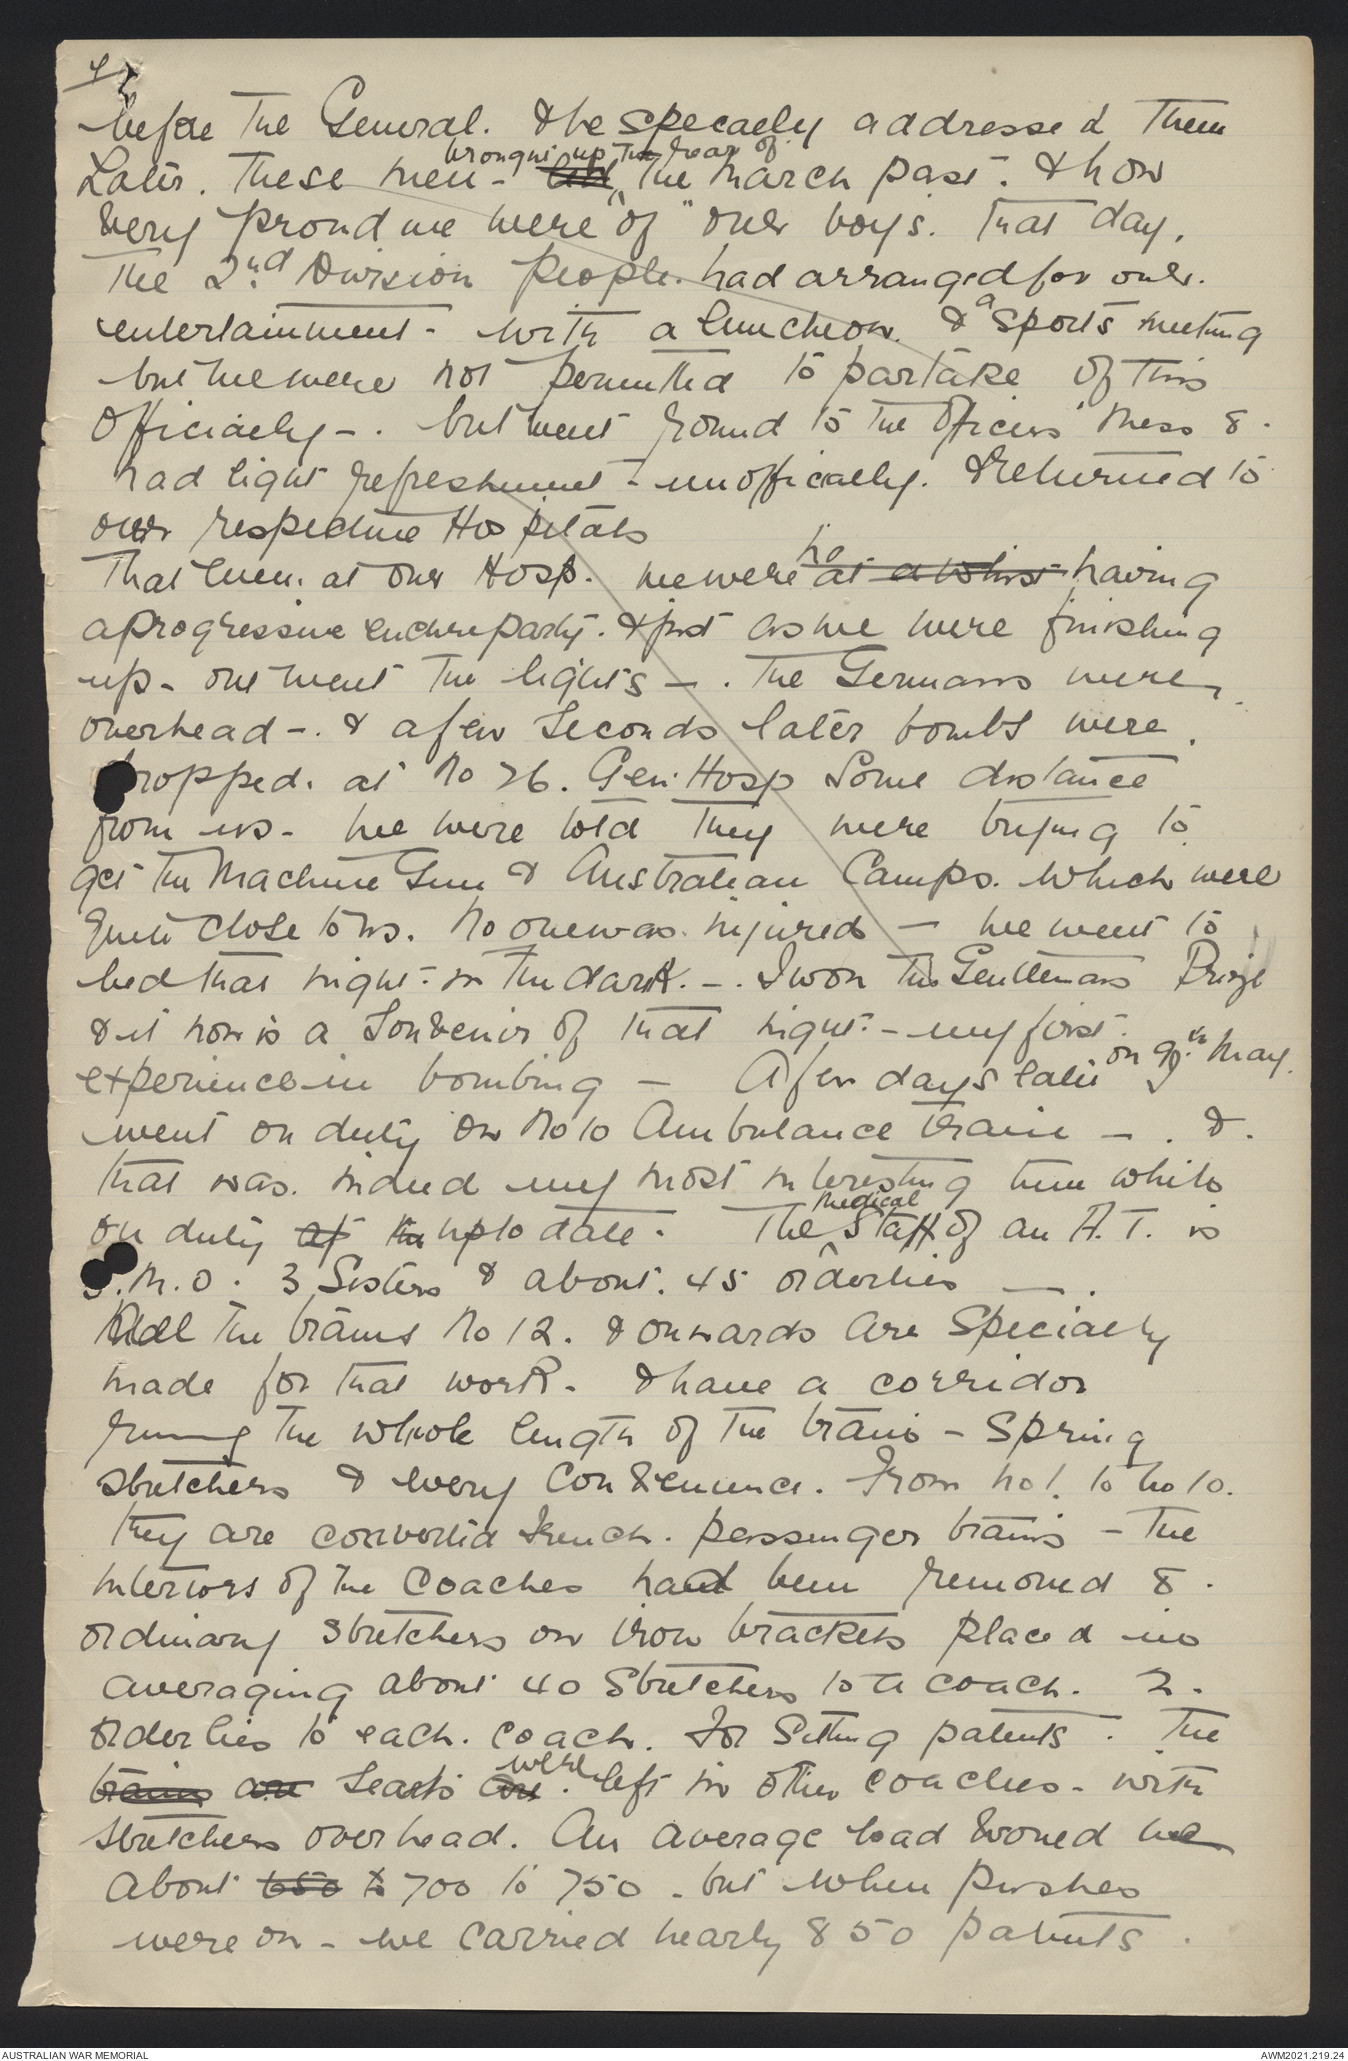 4
before the General. & he specially addressed them
brought up the rear of
Later. These men - the March past. & how
very proud we were "of" our boys. that day.
The 2nd Division people. had arranged for our.
entertainment - with a luncheon. & a sports meeting
but we were not permitted to partake of this
officially -. but went round to the Officers' Mess &.
had light refreshment - unofficially. & returned to
our respective Hospitals
That Even. at our Hosp. we were at a whist having
a progressive euchre party. & just as we were finishing
up - out went the lights -. The Germans were
overhead -. & a few seconds later bombs were.
dropped. at No 26. Gen. Hosp some distance
from us - we were told they were trying to
get the Machine Gun & Australian Camps. which were
quite close to us. No one was injured - we went to
bed that night - in the dark. -. I won the Gentlemans Prize
& it now is a Souvenir of that night - my first.
experience in bombing - A few days later on 9th May.
went on duty on No 10 Ambulance train -. &.
that was. indeed my most interesting time while
on duty at the up to date. The Medical Staff of an A.T. is
3. M.O. 3 Sisters & about. 45 orderlies -.
All the trains No 12. & onwards are specially
made for that work. & have a corridor
running the whole length of the train - spring
stretchers & every convenience. From No 1. to No 10.
they are converted French. passenger trains - the
interiors of the coaches had been removed &.
ordinary stretchers on iron brackets placed in
averaging about 40 stretchers to a coach. 2.
orderlies to each. coach. For sitting patients. The
trains are seats are were left in other coaches - with
stretchers overhead. An average load would be
about 650 to 700 to 750 - but when pushes
were on - we carried nearly 850 patients.
AUSTRALIAN WAR MEMORIAL
AWM2021.219.24